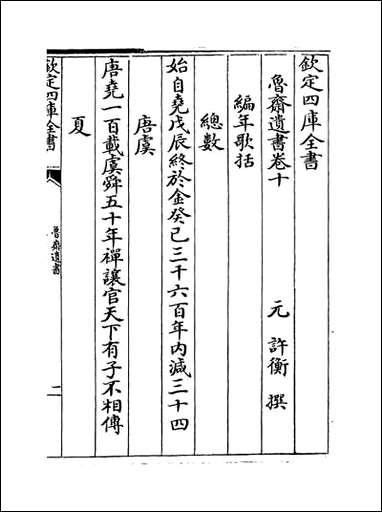 欽定四庫全書
魯齋遺書卷十
元 許衡 撰
編年歌括
總數
始自堯戊辰終於金癸巳三千六百年内減三十四
唐虞
唐堯一百載虞舜五十年禪讓官天下有子不相傳
夏
欽定四庫全書
魯齋遺書
二